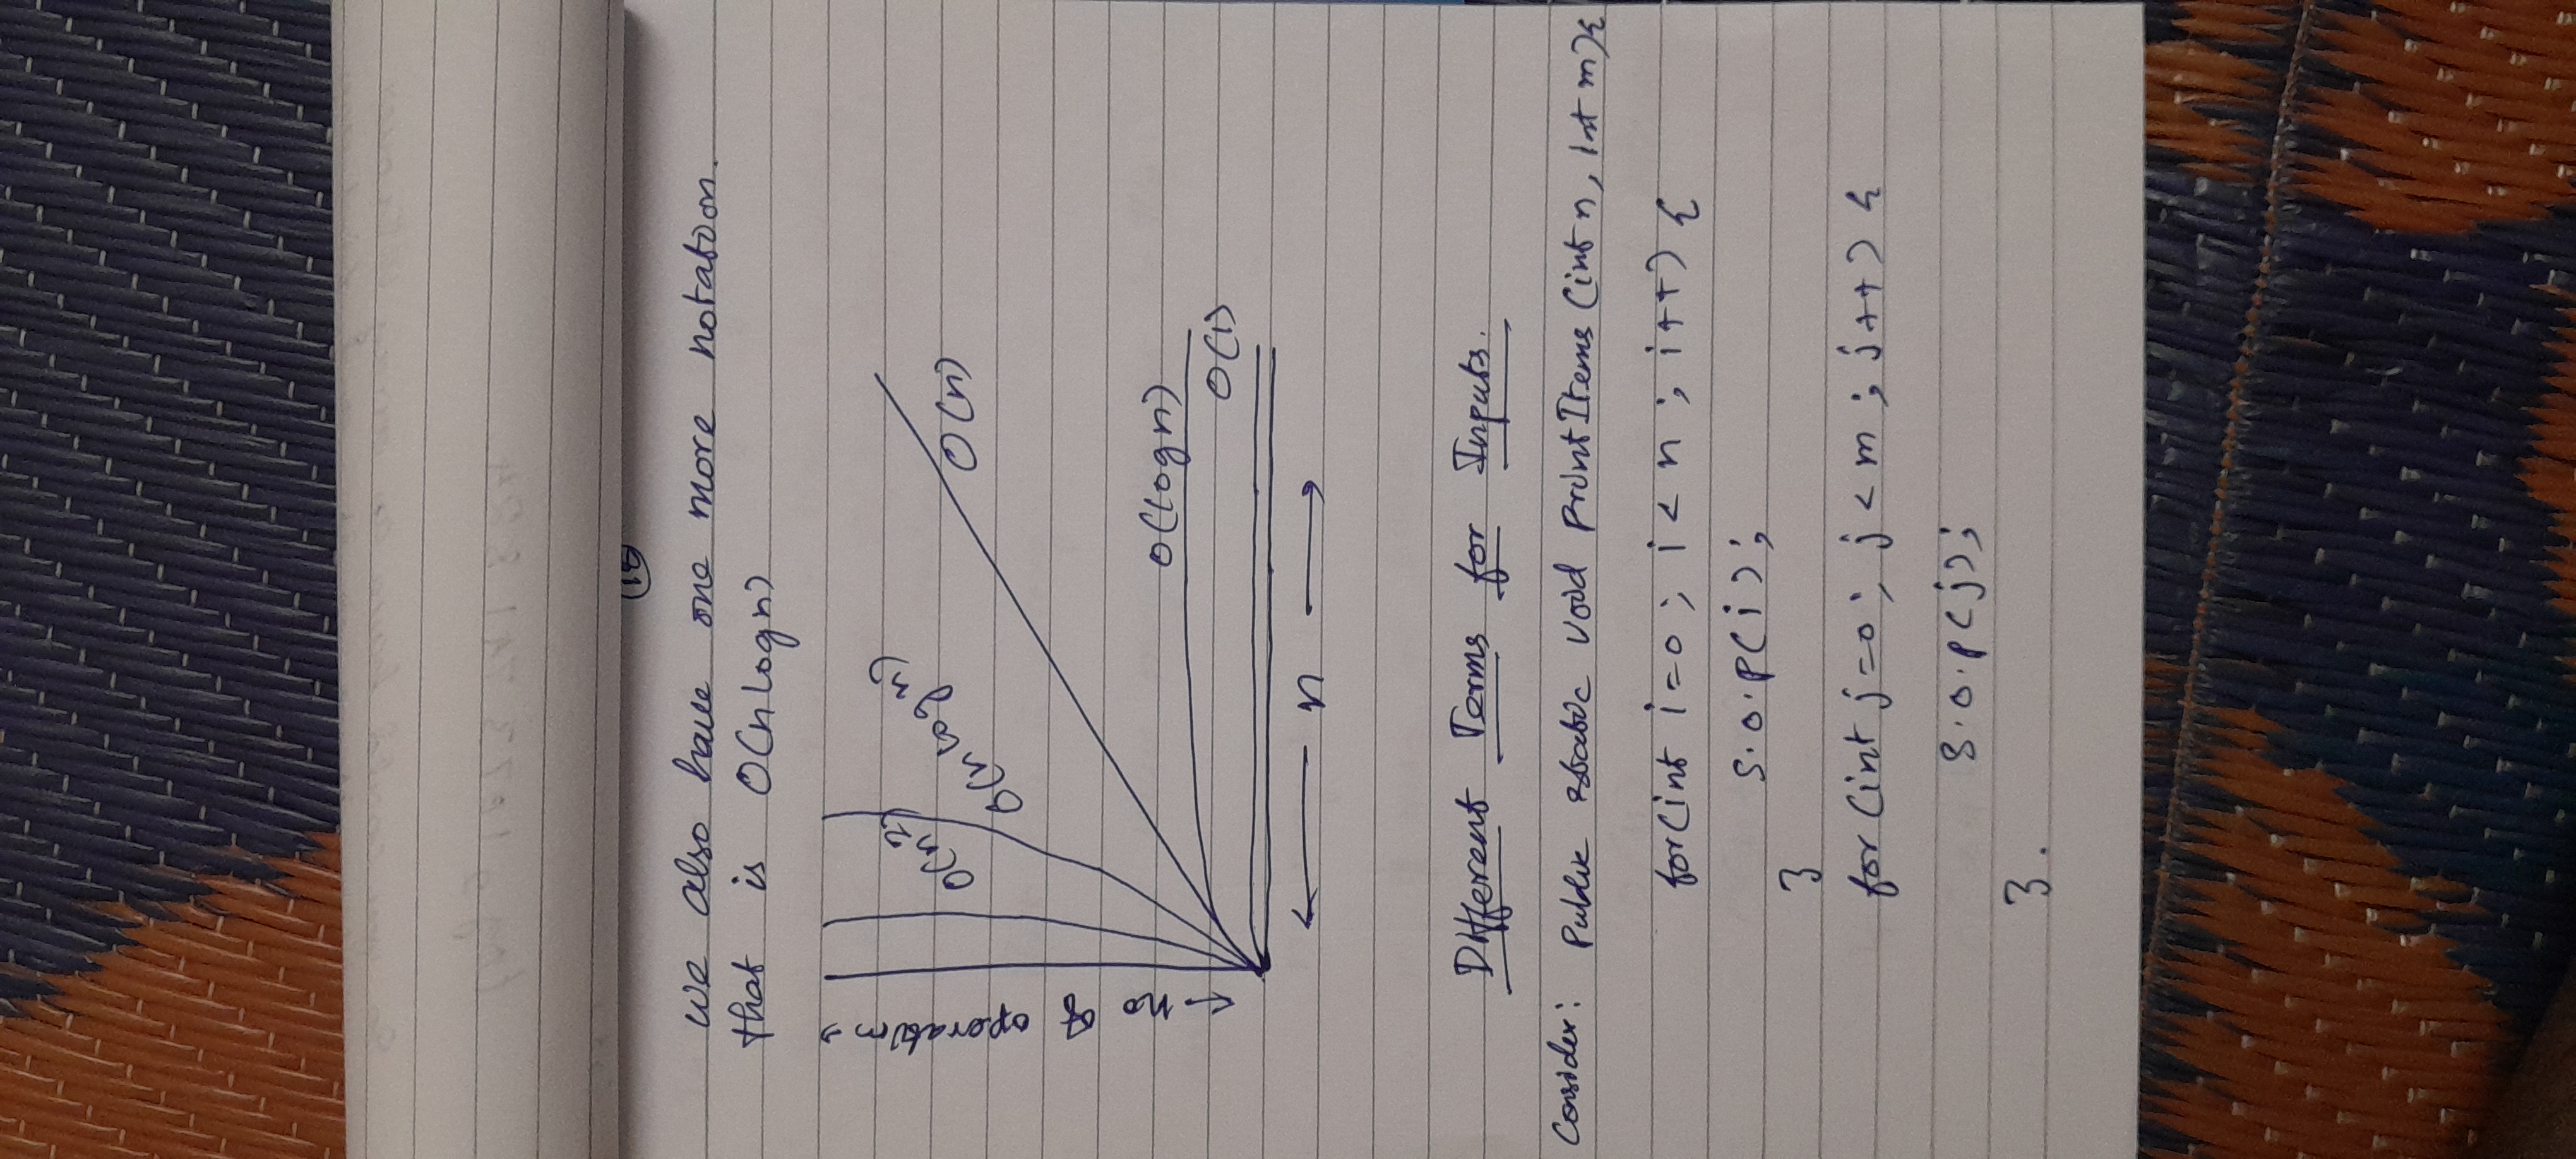 18
we also have one more notation.
that is O(n log n)
← no of operation →
O(n2)
O(n log n)
O(n)
O(log n)
O(1)
← n →
Different Terms for Inputs.
Consider: Public static void printItems (int n, int m){
for(int i=0; i<n; i++) {
S.O.P(i);
}
for (int j=0; j<m; j++) {
S.O.P(j);
}.